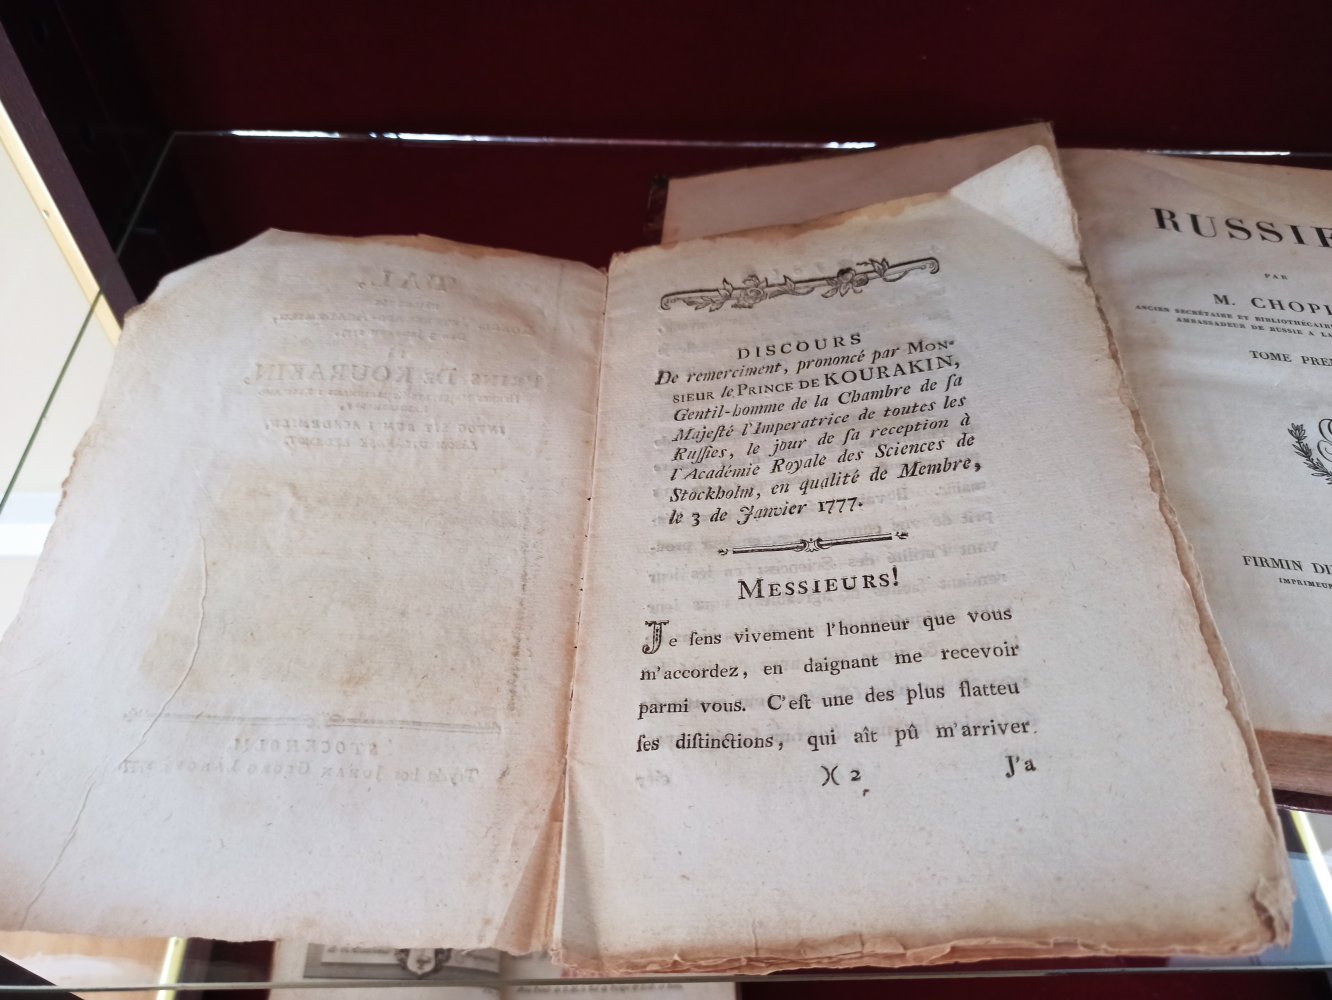 DISCOURS
De remerciment, prononcé par MON-
SIEUR le PRINCE DE KOURAKIN,
Gentil-homme de la Chambre de ſa
Majeſté l'Imperatrice de toutes les
Ruſſies, le jour de ſa reception à
l'Académie Royale des Sciences de
Stockholm, en qualité de Membre,
le 3 de Janvier 1777.
MESSIEURS!
Je ſens vivement l'honneur que vous
m'accordez, en daignant me recevoir
parmi vous. C'eſt une des plus flatteu
ſes diſtinctions, qui aît pû m'arriver.
)( 2
J'a
RUSSIE
PAR
M. CHOPI
ANCIEN SECRÉTAIRE ET BIBLIOTHÉCAIRE
AMBASSADEUR DE RUSSIE A LA
TOME PREM
FIRMIN DI
IMPRIMEUR
TAL,
PRINS DE KOURAKIN,
STOCKHOLM,